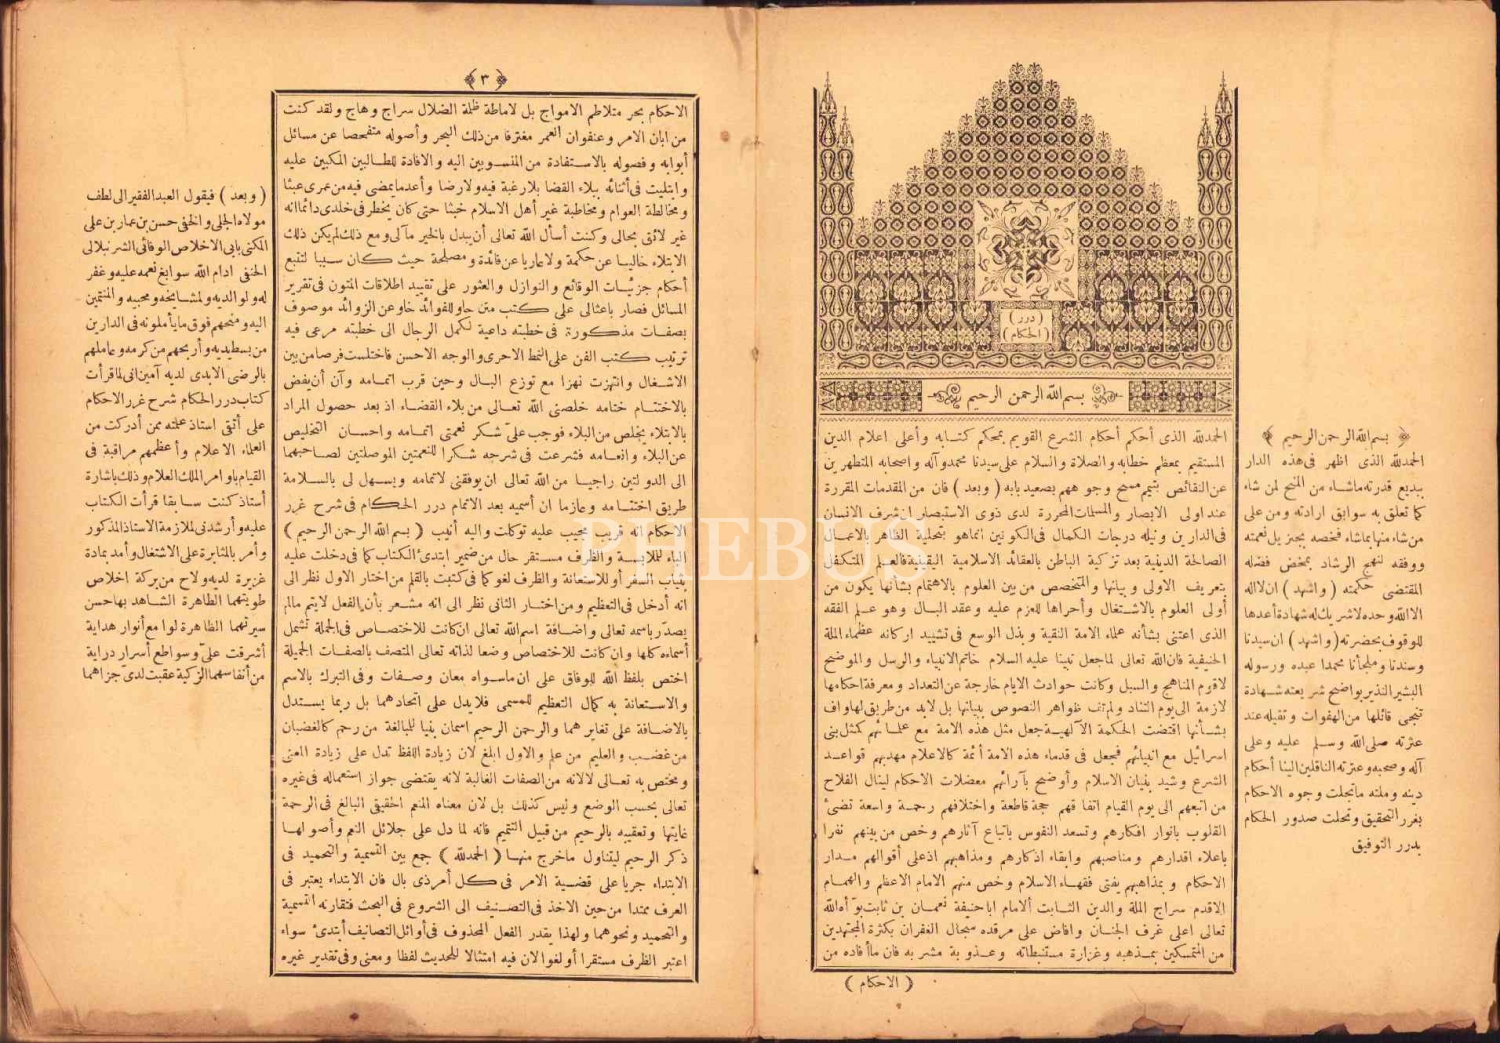 (درر)
(الحكام)
بسم الله الرحمن الرحيم
الحمدلله الذى أحكم أحكام الشرع القويم بمحكم كتابه وأعلى اعلام الدين
المستقيم بمعظم خطابه والصلاة والسلام على سيدنا محمد وآله واصحابه المتطهرين
عن النقائص بتيمم مسح وجوههم بصعيد بابه (وبعد) فان من المقدمات المقررة
عند اولى الابصار والمسلمات المحررة لدى ذوى الاستبصار ان شرف الانسان
فى الدارين ونيله درجات الكمال فى الكونين انما هو بتحلية الظاهر بالاعمال
الصالحة الدينية بعد تزكية الباطن بالعقائد الاسلامية اليقينية فالعلم المتكفل
بتعريف الاولى وبيانها والمتخصص من بين العلوم بالاهتمام بشأنها يكون من
أولى العلوم بالاشتغال وأحراها للعزم عليه وعقد البال وهو علم الفقه
الذى اعتنى بشأنه علماء الامة النقية وبذل الوسع فى تشييد اركانه عظماء الملة
الحنيفية فان الله تعالى لما جعل نبينا عليه السلام خاتم الانبياء والرسل والموضح
لاقوم المناهج والسبل وكانت حوادث الايام خارجة عن التعداد ومعرفة احكامها
لازمة الى يوم التناد ولم تف ظواهر النصوص ببيانها بل لابد من طريق لها واف
بشأنها اقتضت الحكمة الالهية جعل مثل هذه الامة مع علمائهم كمثل بنى
اسرائيل مع انبيائهم فجعل فى قدماء هذه الامة أئمة كالاعلام مهد بهم قواعد
الشرع وشيد بنيان الاسلام وأوضح بآرائهم معضلات الاحكام لينال الفلاح
من اتبعهم الى يوم القيام اتفاقهم حجة قاطعة واختلافهم رحمة واسعة تضئ
القلوب بانوار افكارهم وتسعد النفوس باتباع آثارهم وخص من بينهم نفرا
باعلاء اقدارهم ومناصبهم وابقاء اذكارهم ومذاهبهم اذ على أقوالهم مدار
الاحكام وبمذاهبهم يفتى فقهاء الاسلام وخص منهم الامام الاعظم والهمام
الاقدم سراج الملة والدين الثابت ألامام ابا حنيفة نعمان بن ثابت بوأه الله
تعالى اعلى غرف الجنان وافاض على مرقده سجال الغفران بكثرة المجتهدين
من المتمسكين بمذهبه وغزارة مستنبطاته وعذوبة مشربه فان ما أفاده من
(الاحكام)
بسم الله الرحمن الرحيم
الحمدلله الذى اظهر فى هذه الدار
ببديع قدرته ماشاء من المنح لمن شاء
كما تعلق به سوابق ارادته ومن على
من شاء منها بما شاء فخصه بجزيل نعمته
ووفقه لنهج الرشاد بمحض فضله
المقتضى حكمته (واشهد) ان لا اله
الا الله وحده لاشريك له شهادة أعدها
للوقوف بحضرته (واشهد) ان سيدنا
وسندنا وملجأنا محمدا عبده ورسوله
البشير النذير بواضح شريعته شهادة
تنجى قائلها من الهفوات وتقيله عند
عثرته صلى الله وسلم عليه وعلى
آله وصحبه وعترته الناقلين الينا أحكام
دينه وملته ما تجلت وجوه الاحكام
بغرر التحقيق وتحلت صدور الحكام
بدرر التوفيق
٣
الاحكام بحر متلاطم الامواج بل لاماطة ظلمة الضلال سراج وهاج ولقد كنت
من ابان الامر وعنفوان العمر مغترفا من ذلك البحر وأصوله متفحصا عن مسائل
أبوابه وفصوله بالاستفادة من المنسوبين اليه والافادة للطالبين المكبين عليه
وابتليت فى أثنائه ببلاء القضا بلا رغبة فيه ولا رضا وأعد ما يمضى فيه من عمرى عبثا
ومخالطة العوام ومخاطبة غير أهل الاسلام خبثا حتى كان يخطر فى خلدى دائما انه
غير لائق بحالى وكنت أسأل الله تعالى أن يبدل بالخير مآلى ومع ذلك لم يكن ذلك
الابتلاء خاليا عن حكمة ولا عاريا عن فائدة ومصلحة حيث كان سببا لتتبع
أحكام جزئيات الوقائع والنوازل والعثور على تقييد اطلاقات المتون فى تقرير
المسائل فصار باعثا لى على كتب متن حاو للفوائد خاو عن الزوائد موصوف
بصفات مذكورة فى خطبته داعية لكمل الرجال الى خطبته مرعى فيه
ترتيب كتب الفن على النمط الاحرى والوجه الاحسن فاختلست فرصا من بين
الاشغال وانتهزت نهزا مع توزع البال وحين قرب اتمامه وآن أن يفض
بالاختتام ختامه خلصنى الله تعالى من بلاء القضاء اذ بعد حصول المراد
بالابتلاء يخلص من البلاء فوجب علىّ شكر نعمتى اتمامه واحسان التخليص
عن البلاء وانعامه فشرعت فى شرحه شكرا للنعمتين الموصلتين لصاحبهما
الى الدولتين راجيا من الله تعالى ان يوفقنى لاتمامه ويسهل لى بالسلامة
طريق اختتامه وعازما ان أسميه بعد الاتمام درر الحكام فى شرح غرر
الاحكام انه قريب مجيب عليه توكلت واليه أنيب (بسم الله الرحمن الرحيم)
الباء للملابسة والظرف مستقر حال من ضمير ابتدئ الكتاب كما فى دخلت عليه
بثياب السفر أو للاستعانة والظرف لغو كما فى كتبت بالقلم من اختار الاول نظر الى
انه أدخل فى التعظيم ومن اختار الثانى نظر الى انه مشعر بأن الفعل لا يتم مالم
يصدّر باسمه تعالى واضافة اسم الله تعالى ان كانت للاختصاص فى الجملة تشمل
أسماءه كلها وان كانت للاختصاص وضعا لذاته تعالى المتصف بالصفات الجميلة
اختص بلفظ الله للوفاق على ان ماسواه معان وصفات وفى التبرك بالاسم
والاستعانة به كمال التعظيم للمسمى فلا يدل على اتحادهما بل ربما يستدل
بالاضافة على تغايرهما والرحمن الرحيم اسمان بنيا للمبالغة من رحم كالغضبان
من غضب والعليم من علم والاول ابلغ لان زيادة اللفظ تدل على زيادة المعنى
ومختص به تعالى لا لانه من الصفات الغالبة لانه يقتضى جواز استعماله فى غيره
تعالى بحسب الوضع وليس كذلك بل لان معناه المنعم الحقيقى البالغ فى الرحمة
غايتها وتعقيبه بالرحيم من قبيل التتميم فانه لما دل على جلائل النعم وأصولها
ذكر الرحيم ليتناول ماخرج منها (الحمدلله) جمع بين التسمية والتحميد فى
الابتداء جريا على قضية الامر فى كل أمر ذى بال فان الابتداء يعتبر فى
العرف ممتدا من حين الاخذ فى التصنيف الى الشروع فى البحث فتقارنه التسمية
والتحميد ونحوهما ولهذا يقدر الفعل المحذوف فى أوائل التصانيف أبتدئ سواء
اعتبر الظرف مستقرا أو لغوا لان فيه امتثالا للحديث لفظا ومعنى وفى تقدير غيره
(وبعد) فيقول العبد الفقير الى لطف
مولاه الجلى والخفى حسن بن عمار بن على
المكنى بابى الاخلاص الوفائى الشرنبلالى
الحنفى ادام الله سوابغ نعمه عليه وغفر
له ولوالديه ولمشايخه ومحبيه والمنتمين
اليه ومنحهم فوق ما يأملونه فى الدارين
من بسط يديه وأربحهم من كرمه وعاملهم
بالرضى الابدى لديه آمين انى لما قرأت
كتاب درر الحكام شرح غرر الاحكام
على أتقى استاذ علمته ممن أدركت من
العلماء الاعلام وأعظمهم مراقبة فى
القيام باوامر الملك العلام وذلك باشارة
أستاذ كنت سابقا قرأت الكتاب
عليه وأرشدنى لملازمة الاستاذ المذكور
وأمر بالمثابرة على الاشتغال وأمد بمادة
غزيرة لديه ولاح من بركة اخلاص
طويتهما الظاهرة الشاهد بها حسن
سيرتهما الظاهرة لوامع أنوار هداية
أشرقت علىّ وسواطع أسرار دراية
من أنفاسهما الزكية عبقت لدى جزاهما
PHEBUS